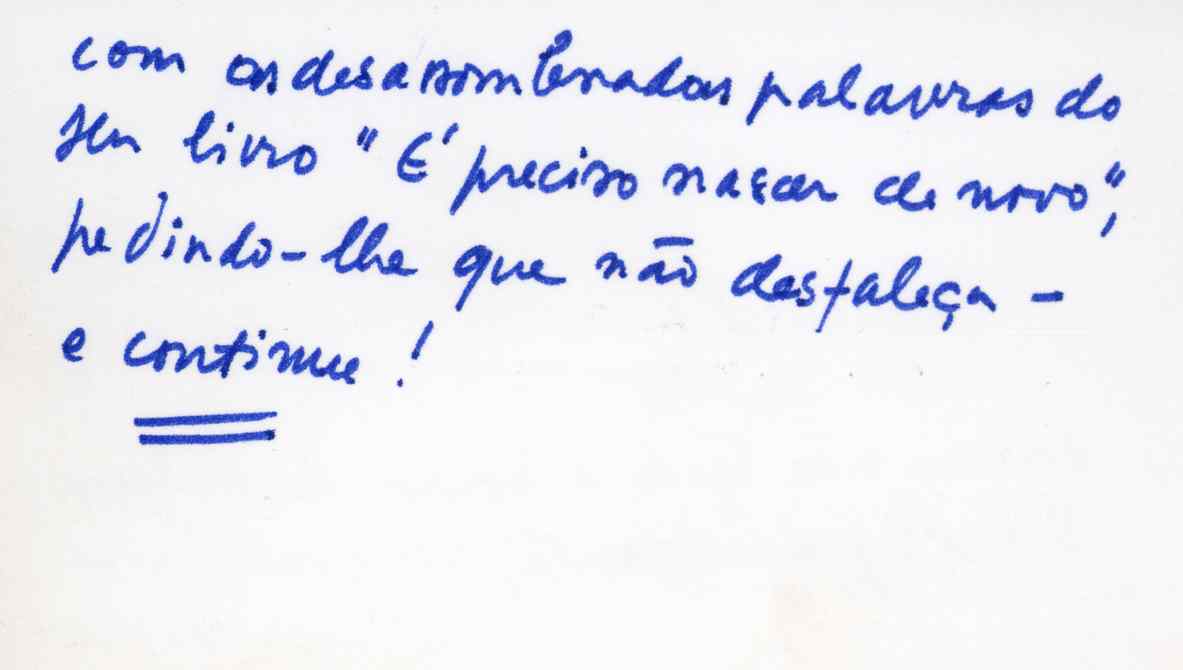 com as desassombradas palavras do
seu livro "É preciso nascer de novo",
pedindo-lhe que não desfaleça -
e continue!